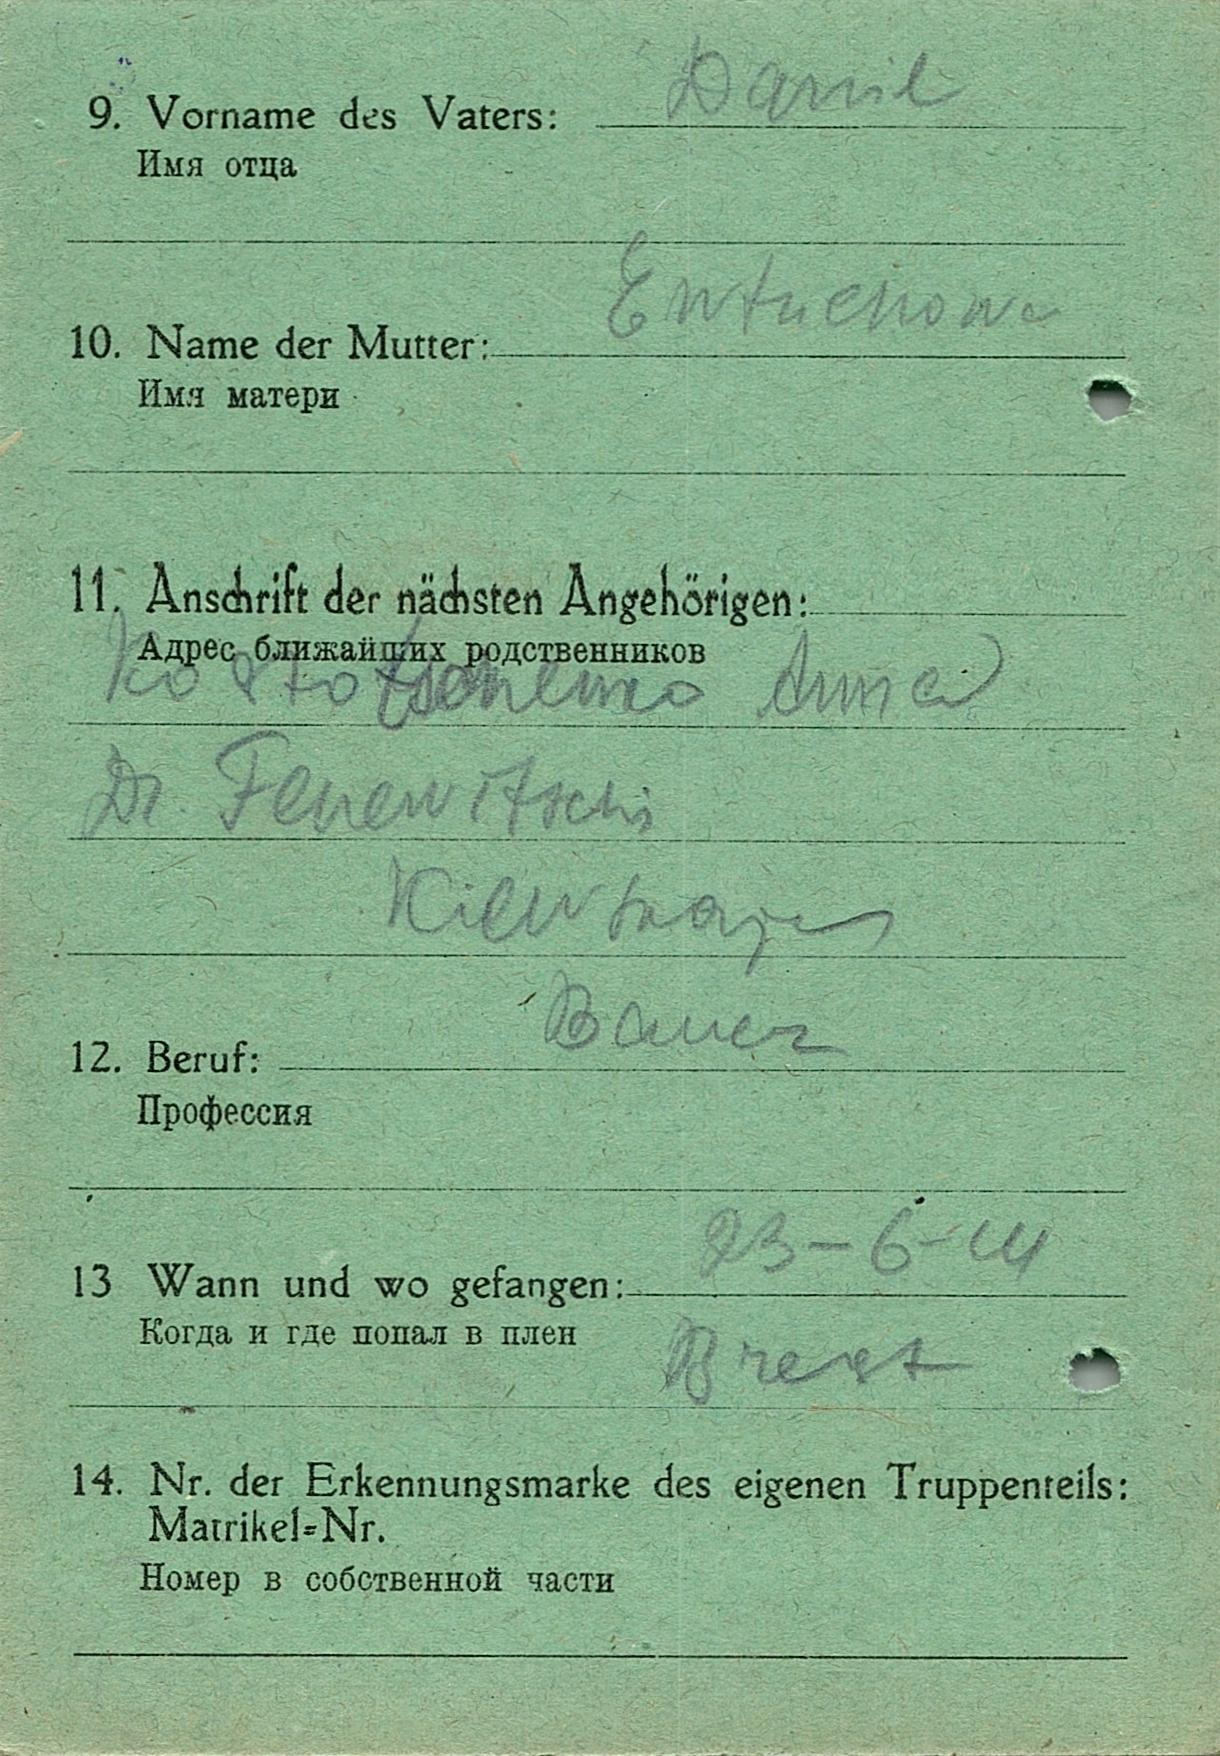 9. Vorname des Vaters: Danil
Имя отца
10. Name der Mutter: Ewtuchowa
Имя матери
11. Anschrift der nächsten Angehörigen:
Адрес ближайших родственников
Anna
Dr.
12. Beruf: Bauer
Профессия
13 Wann und wo gefangen: 23-6-41
Когда и где попал в плен Brest
14. Nr. der Erkennungsmarke des eigenen Truppenteils:
Matrikel=Nr.
Номер в собственной части